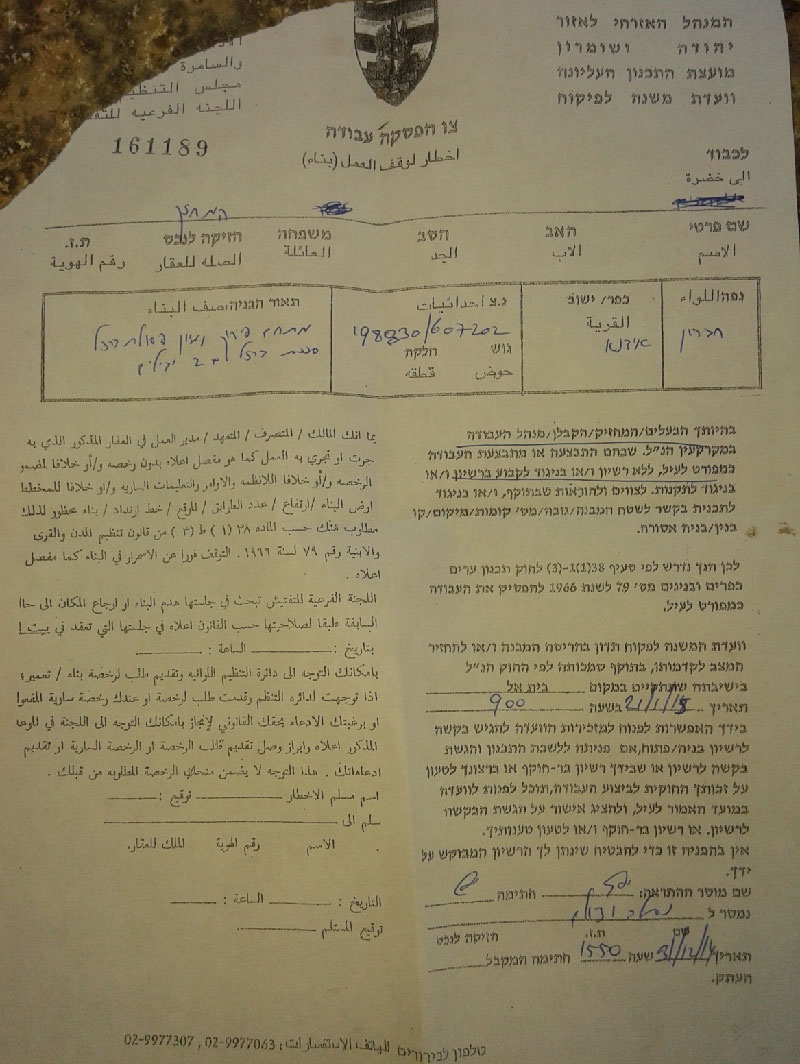 המנהל האזרחי לאזור
יהודה ושומרון
מועצת התכנון העליונה
וועדת משנה לפיקוח
والسامرة
مجلس التنظ
اللجنه الفرعيه للتف
161189
צו הפסקת עבודה
اخطار لوقف العمل (بناء)
לכבוד
الى حضرة
המחזיק
שם פרטי האב הסב משפחה הזיקה לנכס ת.ז.
الاسم الاب الجد العائلة الصله للعقار رقم الهوية
נפה/اللواء
חברון
כפר/ישוב
القرية
אידנא
נ.צ احداثيات
198830/607202
גוש חלקה
حوض قطعه
תאור הבניה/وصف البناء
מתחם פירוק ומיון פסולת ברזל
סככת ברזל + 2
בהיותך הבעלים/המחזיק/הקבלן/מנהל העבודה
במקרקעין הנ"ל, שבהם התבצעה או מתבצעת העבודה
כמפורט לעיל, ללא רשיון ו/או בניגוד לקבוע ברשיון ו/או
בניגוד לתקנות, לצווים ולהוראות שבתוקף, ו/או בניגוד
לתכנית בקשר לשטח המבנה/גובה/מס' קומות/מיקום/קו
בנין/בניה אסורה.
לכן הנך נדרש לפי סעיף 38(1)-(3) לחוק תכנון ערים
כפרים ובנינים מס' 79 לשנת 1966 להפסיק את העבודה
כמפורט לעיל.
וועדת המשנה לפיקוח תדון בהריסת המבנה ו/או להחזיר
המצב לקדמותו, בתוקף סמכותה לפי החוק הנ"ל
בישיבתה שתתקיים במקום בית אל
תאריך 21/1/15 בשעה 900
בידך האפשרות לפנות למזכירות הוועדה להגיש בקשה
לרשיון בניה/פתוח, אם פנית ללשכת התכנון והגשת
בקשה לרשיון או שבידך רשיון בר-תוקף או ברצונך לטעון
על זכותך החוקית לביצוע העבודה, תוכל לפנות לוועדה
במועד האמור לעיל, ולהציג אישור על הגשת הבקשה
לרשיון, או רשיון בר-תוקף ו/או לטעון טענותיך.
אין בהפניה זו כדי להבטיח שינתן לך הרשיון המבוקש על
ידך.
שם מוסר ההתראה: חתימה
נמסר ל
שם ת.ז. הזיקה לנכס
תאריך 31/12/14 שעה 1550 חתימת המקבל
העתק.
بما انك المالك / المتصرف / المتعهد / مدير العمل في العقار المذكور الذي به
جرت او تجري به العمل كما هو مفصل اعلاه بدون رخصه و/أو خلافا لمضمو
الرخصه و/أو خلافا للانظمه والاوامر والتعليمات الساريه و/أو خلافا للمخطط
ارض البناء /ارتفاع / عدد الطوابق / الموقع / خط ارتداد / بناء محظور لذلك
مطلوب منك حسب الماده ٣٨ (١) ط (٣) من قانون تنظيم المدن والقرى
والابنية رقم ٧٩ لسنة ١٩٦٦ . التوقف فورا عن الاستمرار في البناء كما مفصل
اعلاه .
اللجنة الفرعية للتفتيش تبحث في جلستها هدم البناء او ارجاع المكان الى حا
السابقة طبقا لصلاحيتها حسب القانون اعلاه في جلستها التي تعقد في بيت ا
بتاريخ: الساعة :
بامكانك التوجه الى دائرة التنظيم اللوائيه وتقديم طلب لرخصة بناء / تعمير؛
اذا توجهت لدائره التنظم وقدمت طلب لرخصة او عندك رخصة سارية المفعو
او برغبتك الادعاء بحقك القانوني لإنجاز بامكانك التوجه الى اللجنة في الموعد
المذكور اعلاه وابراز وصل تقديم طلب الرخصة او الرخصة السارية او تقديم
ادعاءاتك . هذا التوجه لا يضمن منحك الرخصة المطلوبه من قبلك .
اسم مسلم الاخطار توقيع :
سلم الى
الاسم رقم الهوية الملك للعقار.
التاريخ : الساعة :
توقيع المستلم
טלפון לבירורים لهاتف الاستفسارات : 02-9977063 , 02-9977307